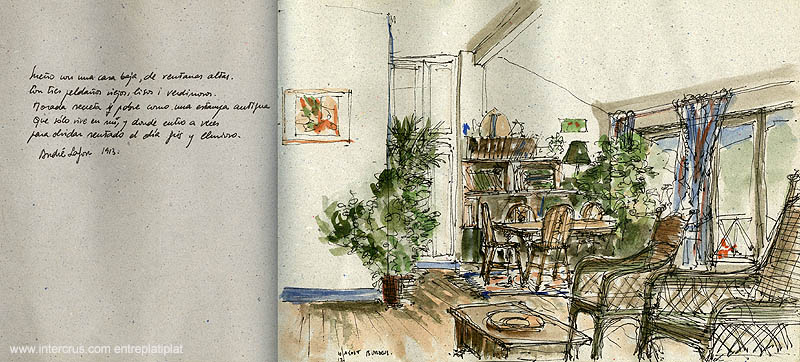 Sueño con una casa baja, de ventanas altas.
Con tres peldaños viejos, lisos i verdinosos.
Morada secreta y pobre como una estampa antigua
Que sólo vive en mí, y donde entro a veces
para olvidar sentado el día gris y lluvioso.
André Lafon 1913.
www.intercrus.com entreplatiplat
AGOST